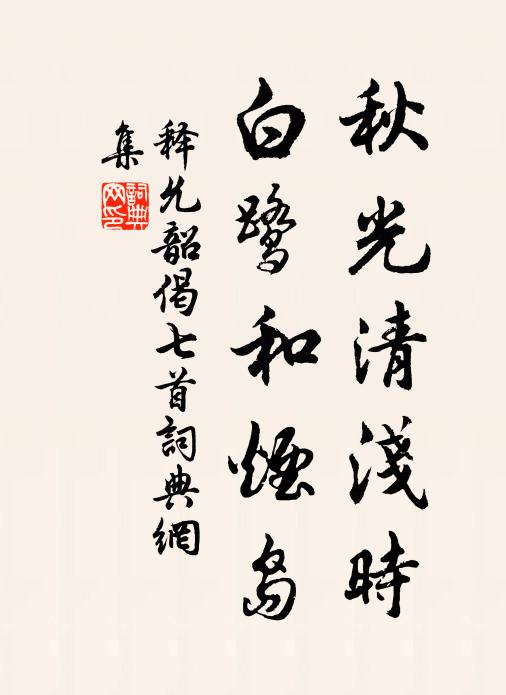 秋光清淺時
白鷺和煙島
释允韶偈七首詞典網
集
詞典網印